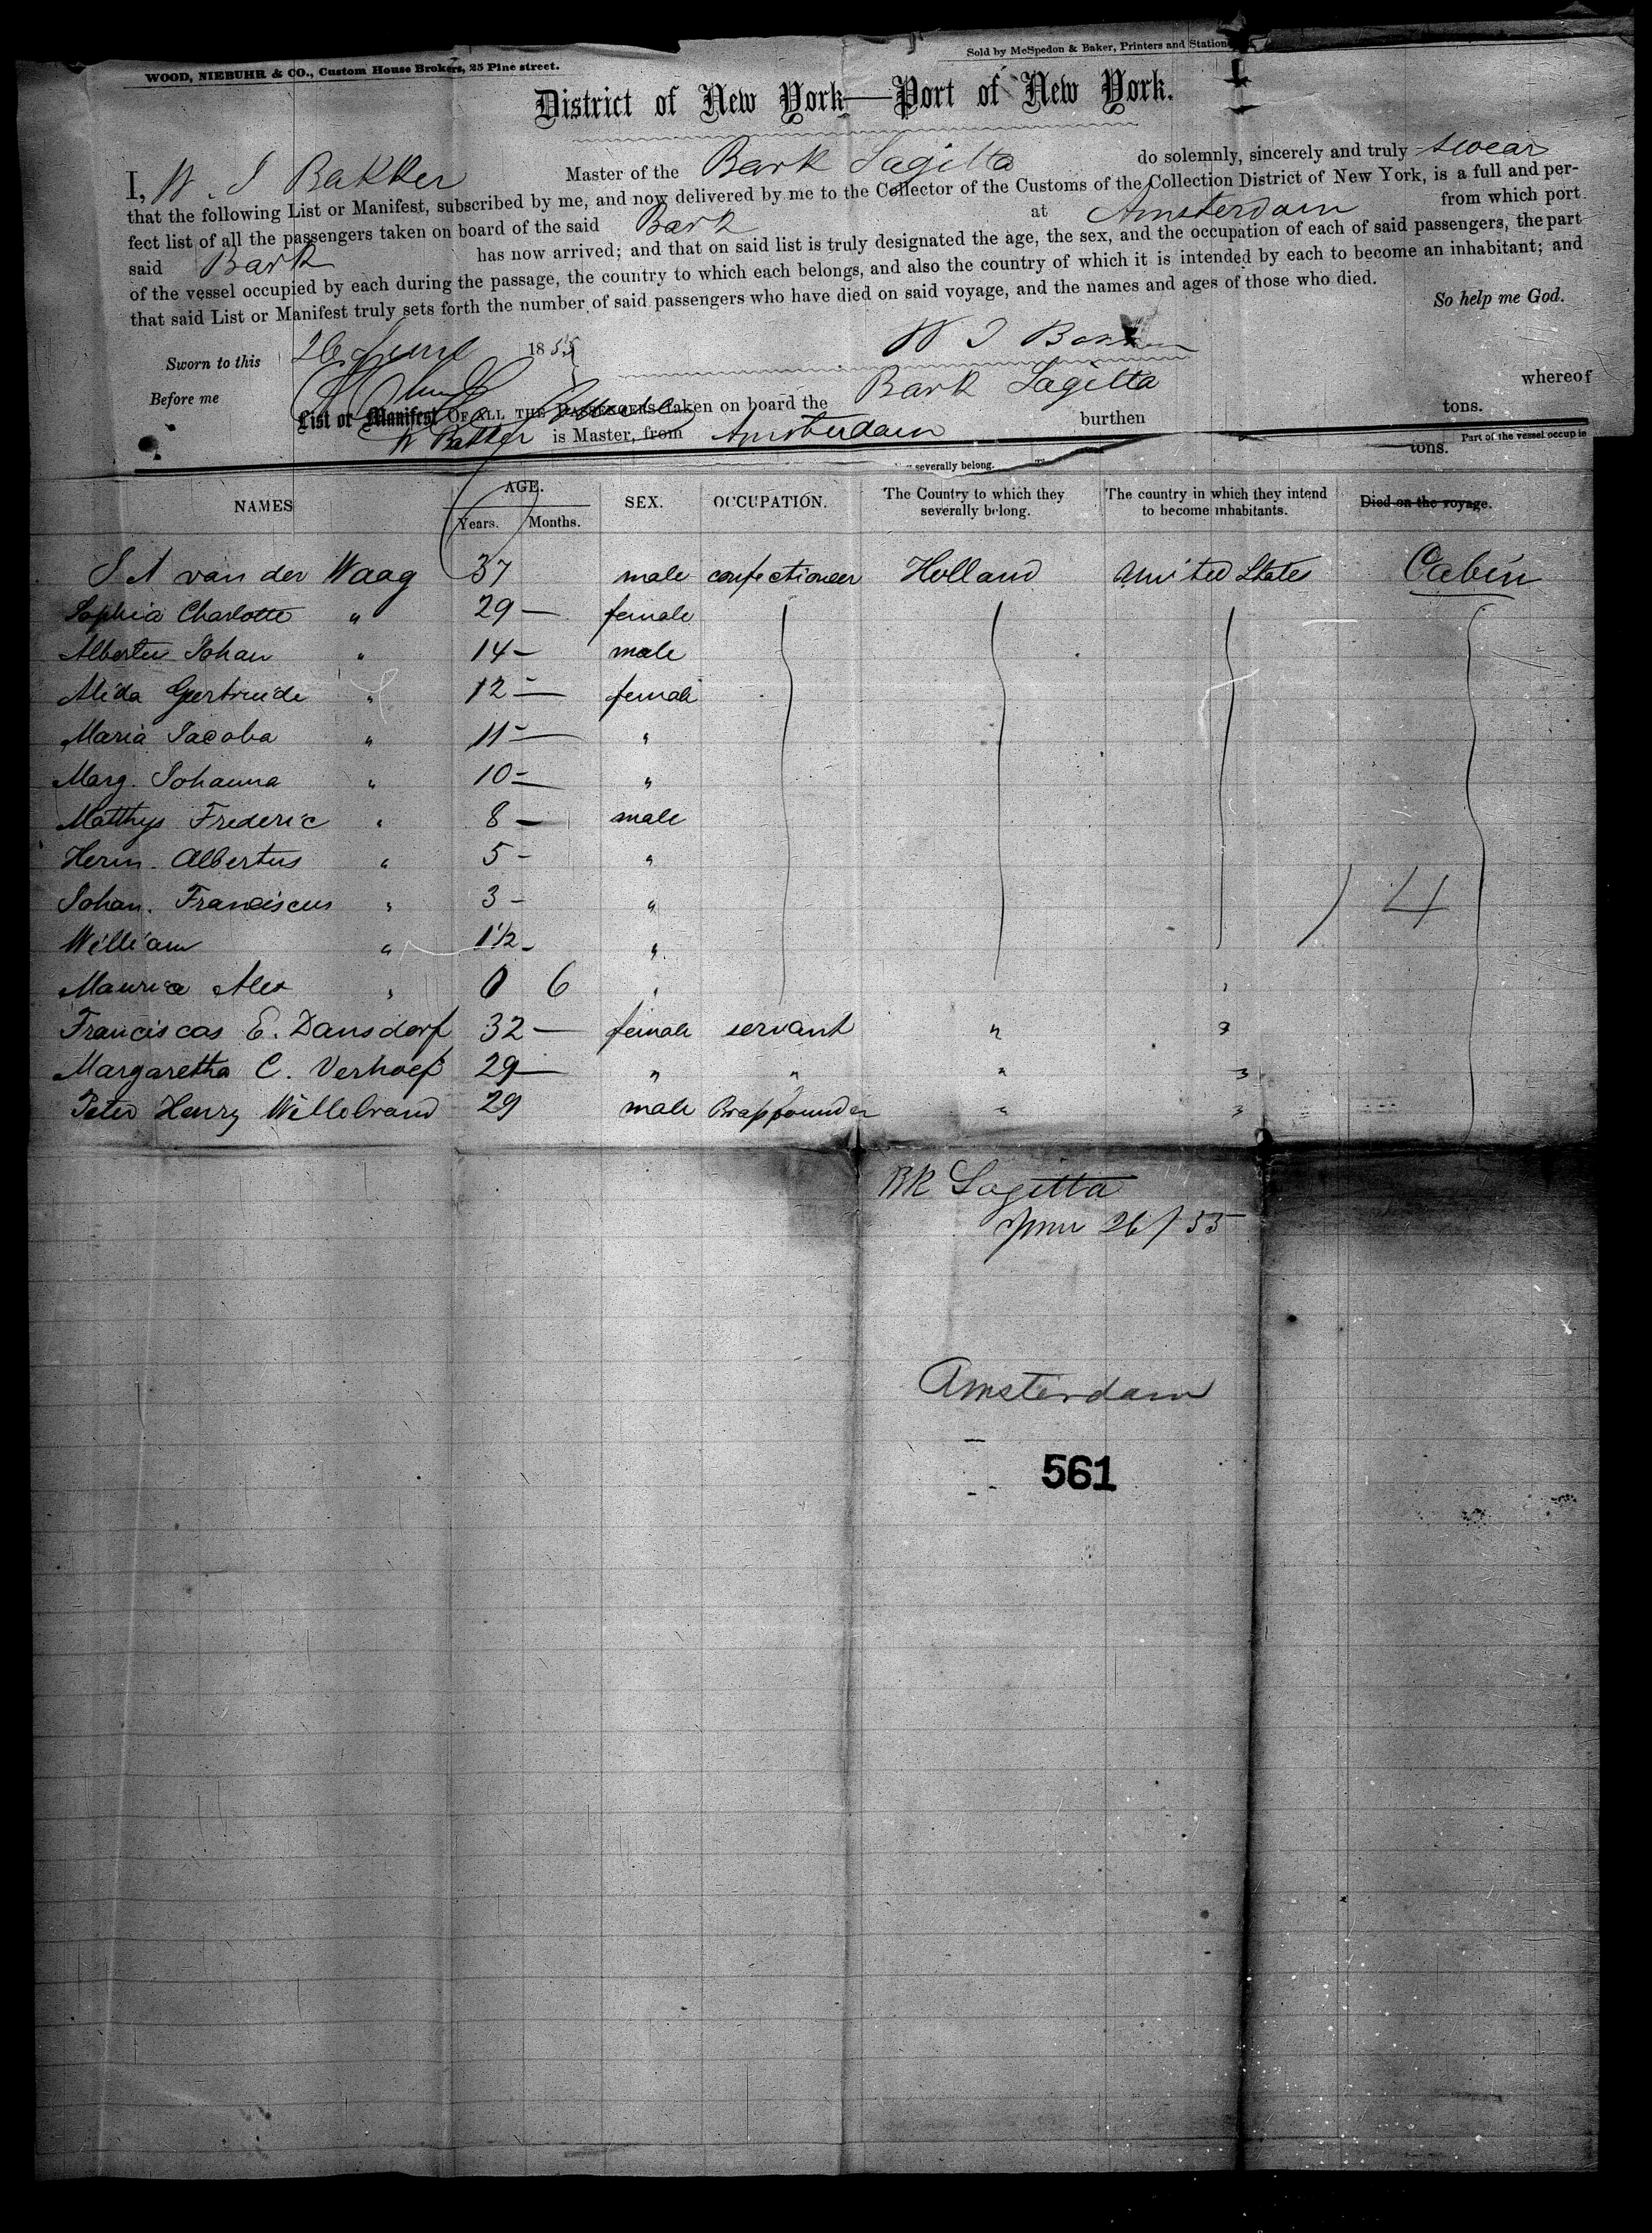 WOOD, NIEBUHR & CO., Custom House Brokers, 25 Pine street.
Sold by McSpedon & Baker, Printers and Station
District of New York—Port of New York.
I, W. J Bakker Master of the Bark Sagitta do solemnly, sincerely and truly swear
that the following List or Manifest, subscribed by me, and now delivered by me to the Collector of the Customs of the Collection District of New York, is a full and per-
fect list of all the passengers taken on board of the said Bark at Amsterdam from which port
said Bark has now arrived; and that on said list is truly designated the age, the sex, and the occupation of each of said passengers, the part
of the vessel occupied by each during the passage, the country to which each belongs, and also the country of which it is intended by each to become an inhabitant; and
that said List or Manifest truly sets forth the number of said passengers who have died on said voyage, and the names and ages of those who died.
So help me God.
Sworn to this 26 June 1855
W J Bakker
Before me
List or Manifest OF ALL THE PASSENGERS taken on board the Bark Sagitta whereof
W Bakker is Master, from Amsterdam burthen tons.
tons. Part of the vessel occupie
severally belong.
NAMES AGE. Years. Months. SEX. OCCUPATION. The Country to which they severally belong. The country in which they intend to become inhabitants. Died on the voyage.
S A van der Waag 37 male confectioneer Holland United States Cabin
Sophia Charlotte " 29 — female
Albertu Johan " 14 — male
Alida Geertruide " 12 — female
Maria Jacoba " 11 — "
Marg. Johanna " 10 — "
Matthys Frederic " 8 — male
Herm. Albertus " 5 - "
Johan. Franciscus " 3 - "
William " 1½ - "
Maurice Alex " 0 6 "
14
Franciscas E. Dansdorf 32 — female servant " "
Margaretha C. Verhoef 29 — " " " "
Peter Henry Willebrand 29 male " "
BK Sagitta
June 26/55
Amsterdam
561